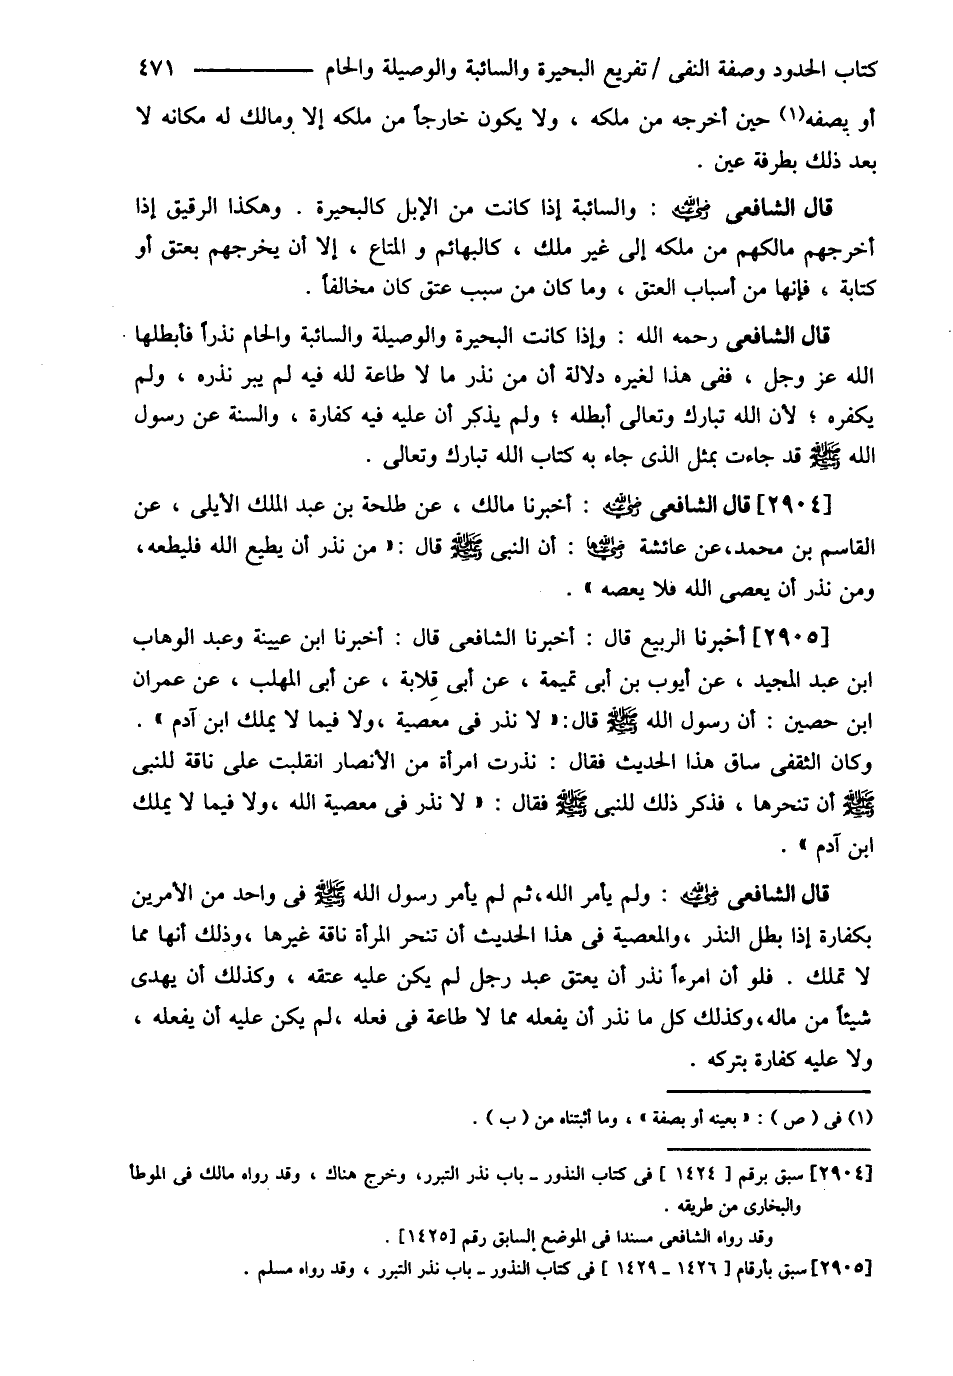 كتاب الحدود وصفة النفى / تفريع البحيرة والسائبة والوصيلة والحام ——— ٤٧١
أو يصفه(١) حين أخرجه من ملكه ، ولا يكون خارجاً من ملكه إلا ومالك له مكانه لا
بعد ذلك بطرفة عين .
قال الشافعى رضي الله عنه : والسائبة إذا كانت من الإبل كالبحيرة . وهكذا الرقيق إذا
أخرجهم مالكهم من ملكه إلى غير ملك ، كالبهائم و المتاع ، إلا أن يخرجهم بعتق أو
كتابة ، فإنها من أسباب العتق ، وما كان من سبب عتق كان مخالفاً .
قال الشافعى رحمه الله : وإذا كانت البحيرة والوصيلة والسائبة والحام نذراً فأبطلها
الله عز وجل ، ففى هذا لغيره دلالة أن من نذر ما لا طاعة لله فيه لم يبر نذره ، ولم
يكفره ؛ لأن الله تبارك وتعالى أبطله ؛ ولم يذكر أن عليه فيه كفارة ، والسنة عن رسول
الله ﷺ قد جاءت بمثل الذى جاء به كتاب الله تبارك وتعالى .
[٢٩٠٤] قال الشافعى رضي الله عنه : أخبرنا مالك ، عن طلحة بن عبد الملك الأيلى ، عن
القاسم بن محمد، عن عائشة رضي الله عنها : أن النبى ﷺ قال :« من نذر أن يطيع الله فليطعه،
ومن نذر أن يعصى الله فلا يعصه » .
[٢٩٠٥] أخبرنا الربيع قال : أخبرنا الشافعى قال : أخبرنا ابن عيينة وعبد الوهاب
ابن عبد المجيد ، عن أيوب بن أبى تميمة ، عن أبى قِلابة ، عن أبى المهلب ، عن عمران
ابن حصين : أن رسول الله ﷺ قال:« لا نذر فى معصية ،ولا فيما لا يملك ابن آدم » .
وكان الثقفى ساق هذا الحديث فقال : نذرت امرأة من الأنصار انقلبت على ناقة للنبى
ﷺ أن تنحرها ، فذكر ذلك للنبى ﷺ فقال : « لا نذر فى معصية الله ،ولا فيما لا يملك
ابن آدم » .
قال الشافعى رضي الله عنه : ولم يأمر الله،ثم لم يأمر رسول الله ﷺ فى واحد من الأمرين
بكفارة إذا بطل النذر ،والمعصية فى هذا الحديث أن تنحر المرأة ناقة غيرها ،وذلك أنها مما
لا تملك . فلو أن امرءاً نذر أن يعتق عبد رجل لم يكن عليه عتقه ، وكذلك أن يهدى
شيئاً من ماله،وكذلك كل ما نذر أن يفعله مما لا طاعة فى فعله ،لم يكن عليه أن يفعله ،
ولا عليه كفارة بتركه .
(١) فى ( ص ) : « بعينه أو بصفة » ، وما أثبتناه من ( ب ) .
[٢٩٠٤] سبق برقم [ ١٤٢٤ ] فى كتاب النذور ــ باب نذر التبرر، وخرج هناك ، وقد رواه مالك فى الموطأ
والبخارى من طريقه .
وقد رواه الشافعى مسندا فى الموضع السابق رقم [١٤٢٥] .
[٢٩٠٥] سبق بأرقام [ ١٤٢٦ ــ ١٤٢٩ ] فى كتاب النذور ــ باب نذر التبرر ، وقد رواه مسلم .